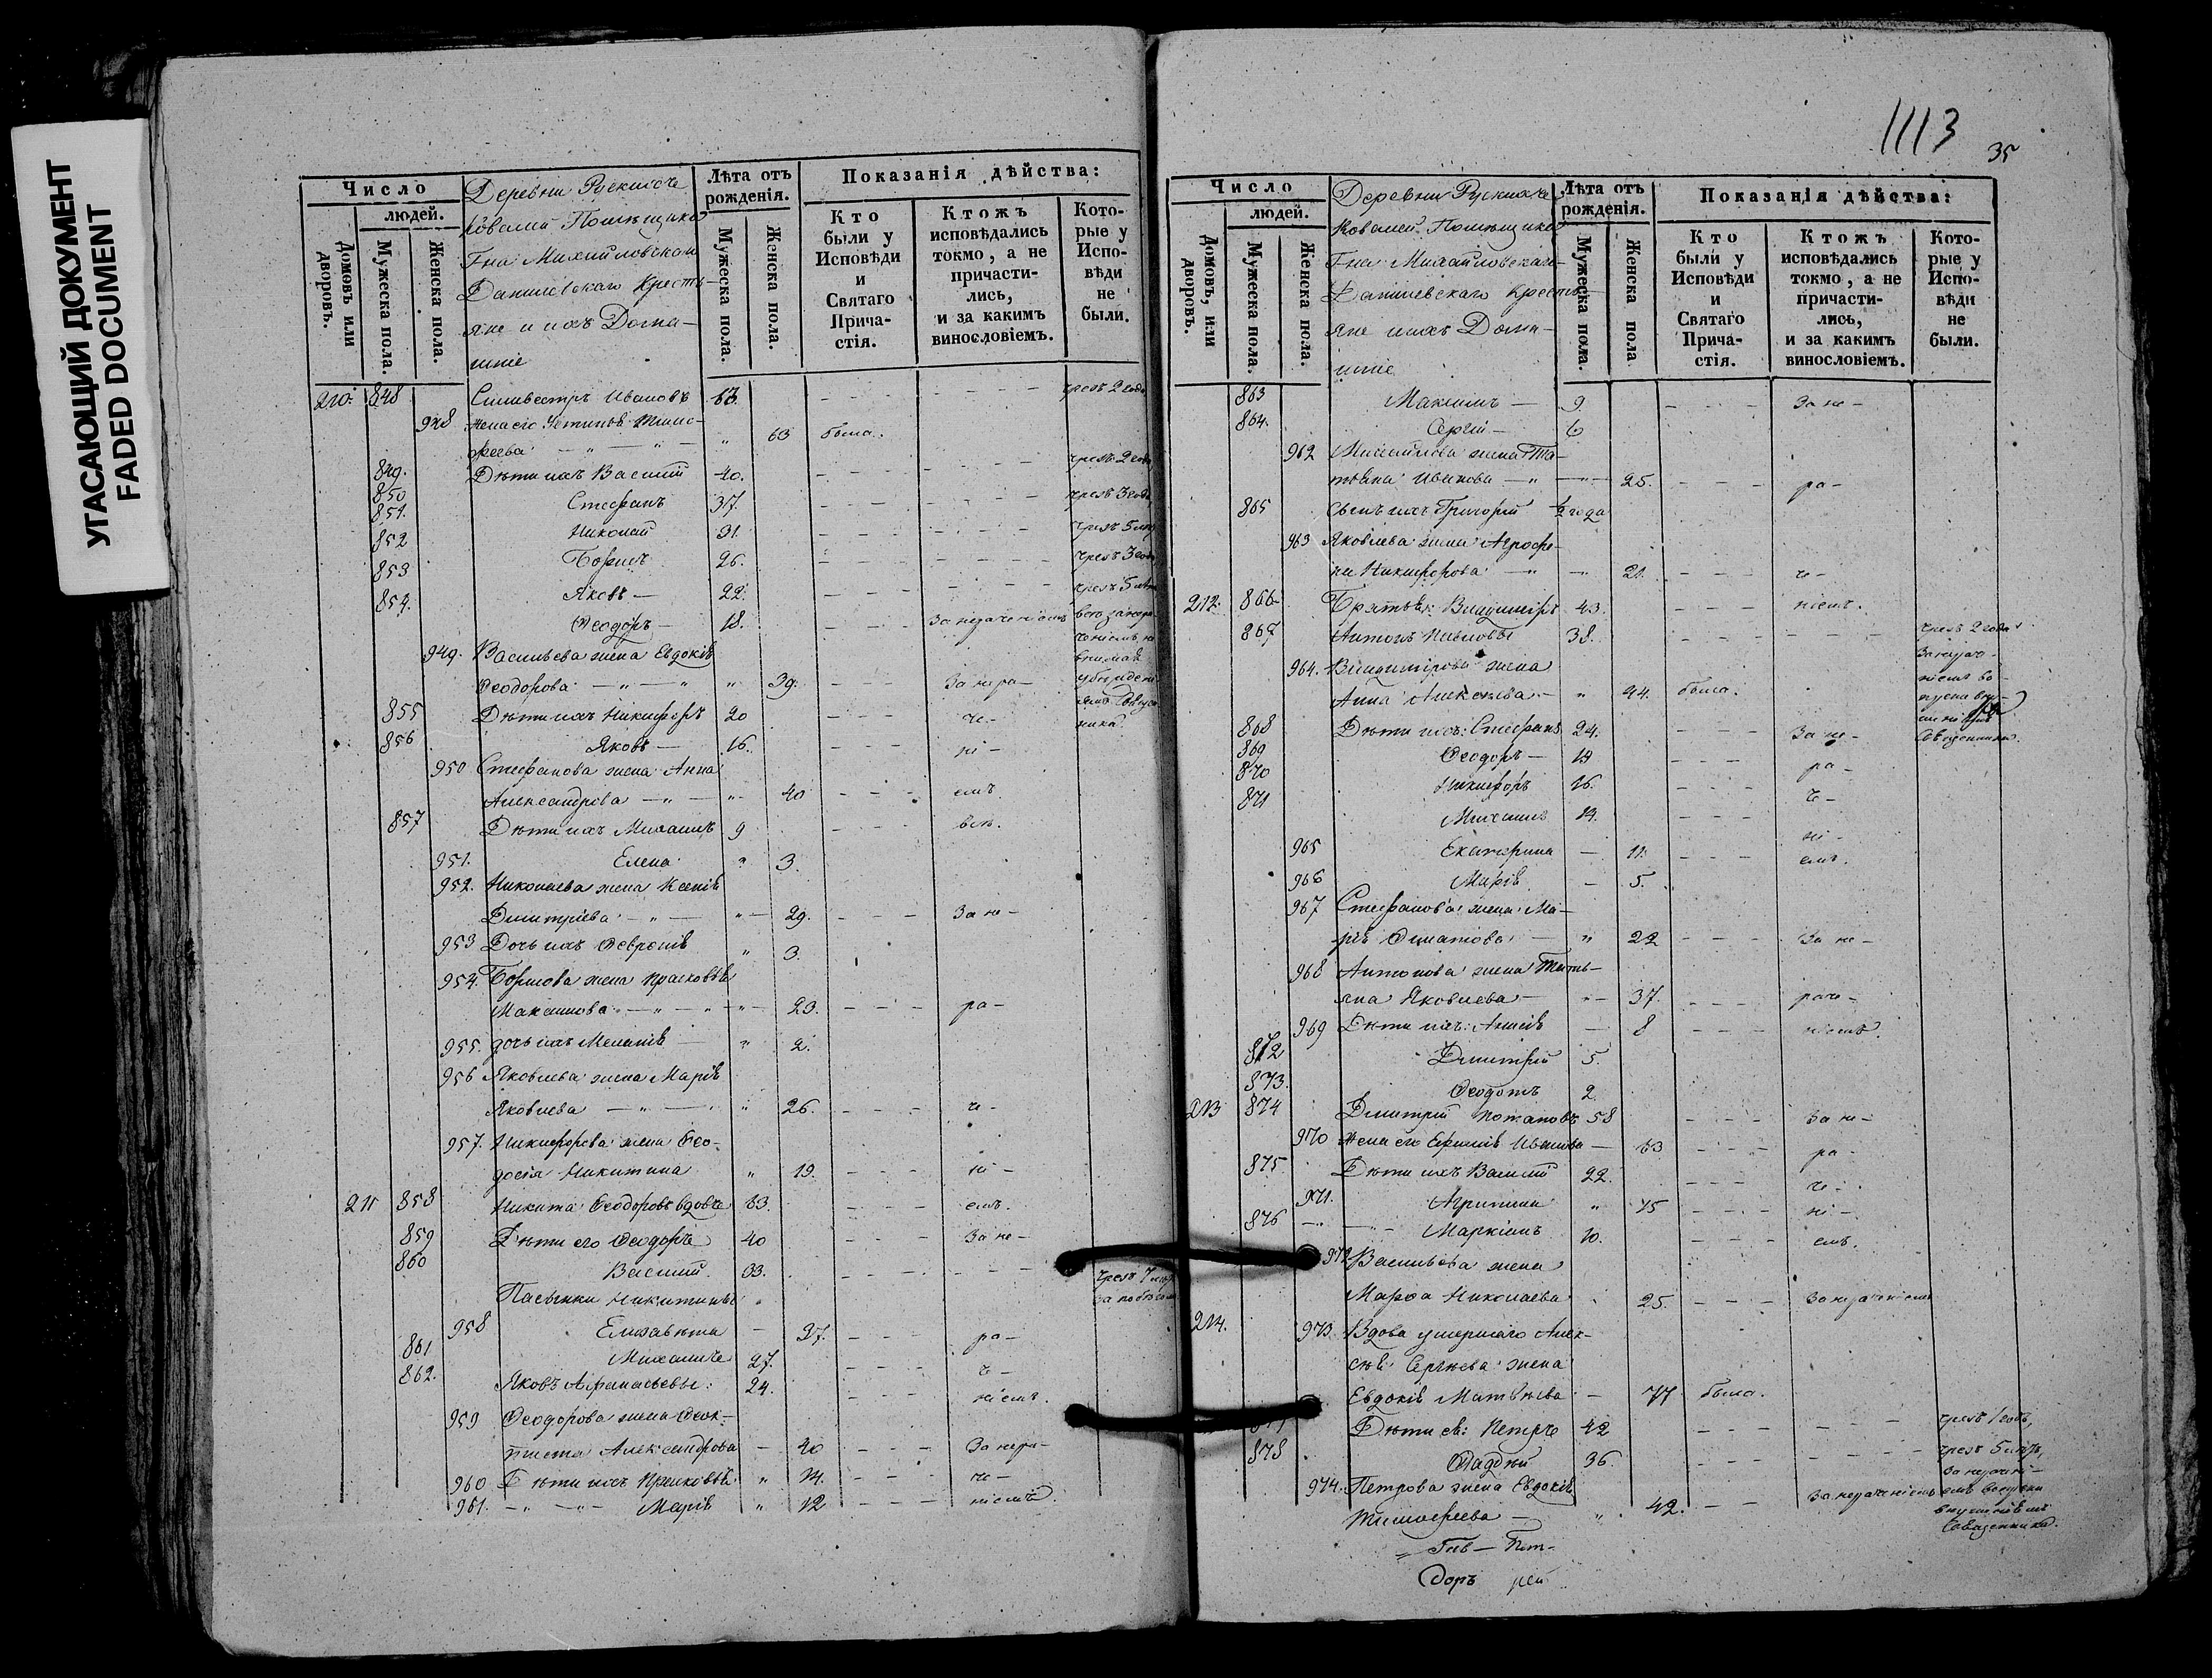 УГАСАЮЩИЙ ДОКУМЕНТ
FADED DOCUMENT
Число
людей.
Домовъ или дворовъ.
Мужеска пола.
Женска пола.
Деревни Рускихъ
Ковалей Помѣщика
Г-на Михайловскаго
Данилевскаго Кресть-
яне и ихъ Домаш-
ніе
Лѣта отъ рожденія.
Мужеска пола.
Женска пола.
Показанія дѣйства:
Кто были у Исповѣди и Святаго Прича-стія.
Ктожъ исповѣдались токмо, а не причасти-лись, и за какимъ винословіемъ.
Кото-рые у Испо-вѣди не были.
210. 848 Силвестръ Ивановъ 63. чрезъ 2 года
948 жена его Устинія Тимо-
феева 63 была.
849. Дѣти ихъ Василій 40. чрезъ 2 года
850 Стефанъ 37. чрезъ 3 года
851. Николай 31. чрезъ 5 лѣтъ
852 Борисъ 26. чрезъ 3 года
853 Яковъ 22. чрезъ 5 лѣтъ
854. Ѳеодоръ 18. За нераченіемъ
949. Васильева жена Евдокія
Ѳеодорова 39. За нера-
855 Дѣти ихъ Никифоръ 20 че-
856 Яковъ 16. ні-
950 Стефанова жена Анна
Александрова 40 емъ.
857 Дѣти ихъ Михаилъ 9 всѣ.
951. Елена 3.
952. Николаева жена Ксенія
Дмитріева 29. За не-
953 Дочь ихъ Февронія 3.
954. Борисова жена Прасковья
Максимова 23. ра-
955. дочь ихъ Меланія 2.
956 Яковлева жена Марія
Яковлева 26. че-
957. Никифорова жена Ѳео-
досія Никитина 19. ні-
211 858 Никита Ѳеодоровъ вдовъ 63. емъ.
859 Дѣти его Ѳеодоръ 40 За не-
860 Василій 33. чрезъ 7 лѣтъ
за побѣгомъ
Пасынки Никитины
958 Елизавета 37. ра-
861 Михаилъ 27. че-
862. Яковъ Афанасьевы: 24. ніемъ.
959 Ѳеодорова жена Ѳеок-
тиста Александрова 40 За нера-
960 Дѣти ихъ Прасковья 14. че-
961. Марія 12 ніемъ.
1113
35
Число
людей.
Домовъ, или дворовъ.
Мужеска пола.
Женска пола.
Деревни Рускихъ
Ковалей Помѣщика
Г-на Михайловскаго
Данилевскаго Кресть-
яне и ихъ Домаш-
ніе
Лѣта отъ рожденія.
Мужеска пола.
Женска пола
Показанія дѣйства:
Кто были у Исповѣди и Святаго Прича-стія.
Ктожъ исповѣдались токмо, а не причасти-лись, и за какимъ винословіемъ.
Кото-рые у Испо-вѣди не были.
863 Максимъ 9. За не-
864. Сергій 6
962 Михайлова жена Та-
тьяна Иванова 25. ра-
865 Сынъ ихъ Григорій ½ года
963 Яковлева жена Агрофе-
на Никифорова 21. че-
212. 866 Братья: Владиміръ 43. ніемъ.
867 Антонъ Павловы 38. чрезъ 2 года
964. Владимірова жена
Анна Алексеева 44. была.
868 Дѣти ихъ: Стефанъ 24. За не- Священника.
869 Ѳеодоръ 19 ра-
870 Никифоръ 16. че-
871 Михаилъ 14.
965 Екатерина 11. ні-
емъ.
966 Марія 5.
967 Стефанова жена Ма-
рія Филатова 22 За не-
968 Антонова жена Тать-
яна Яковлева 37. раче-
969 Дѣти ихъ: Анисія 8 ніемъ.
872 Дмитрій 5.
873. Ѳеодотъ 2
213 874 Дмитрій Потаповъ 58 За не-
970 жена его Ефимія Иванова 63 ра-
875 Дѣти ихъ Василій 22. че-
971. Агрипина 15 ні-
876 Маркіанъ 10. емъ.
972 Васильева жена
Марѳа Николаева 25. За нераченіемъ
214. 973. Вдова умершаго Алек-
сѣя Сергѣева жена
Евдокія Матвѣева 77 была.
Дѣти ея: Петръ 42 чрезъ 1 годъ,
878 Фаддѣй 36. чрезъ 5 лѣтъ,
974. Петрова жена Евдокія
Тимофеева 42. За нераченіемъ
Священника.